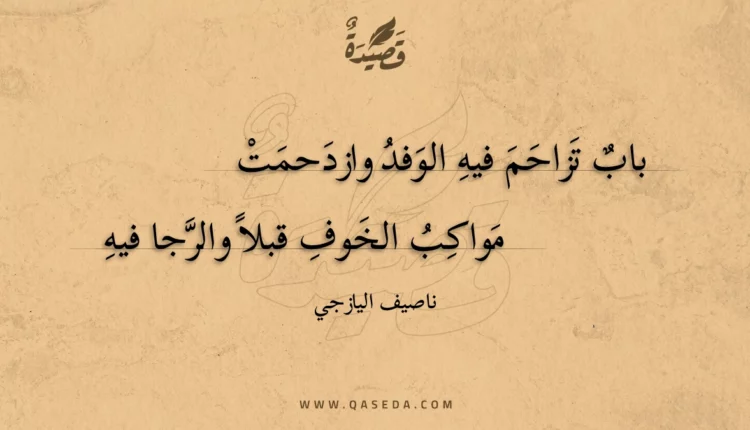 قَصِيْدَةٌ
بابٌ تَزاحَمَ فيهِ الوَفدُ وازدَحمَتْ
مَواكِبُ الخَوفِ قبلاً والرَّجا فيهِ
ناصيف اليازجي
WWW.QASEDA.COM